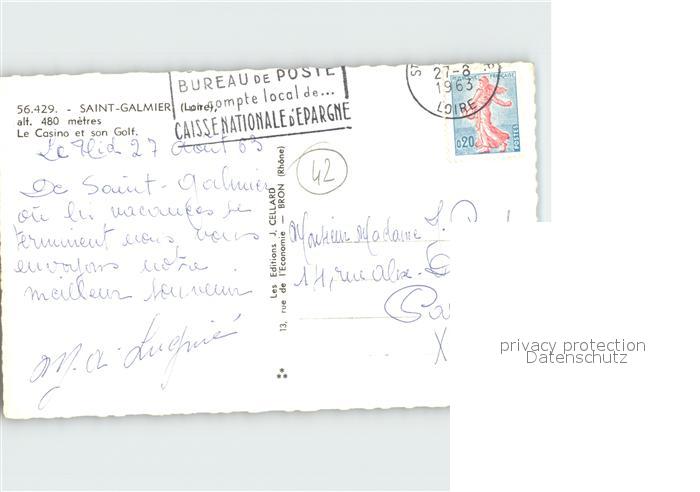 56.429. - SAINT-GALMIER (Loire),
alt. 480 mètres
Le Casino et son Golf.
BUREAU DE POSTE
compte local de...
CAISSE NATIONALE D'EPARGNE
27-8
1963
LOIRE
0,20
POSTES
27 Août 63
42
De Saint-Galmier
où les vacances se
terminent nous vous
envoyons notre
meilleur souvenir
Les Editions J. CELLARD
13, rue de l'Economie — BRON (Rhône)
Monsieur Madame J.
14, rue
X
privacy protection
Datenschutz